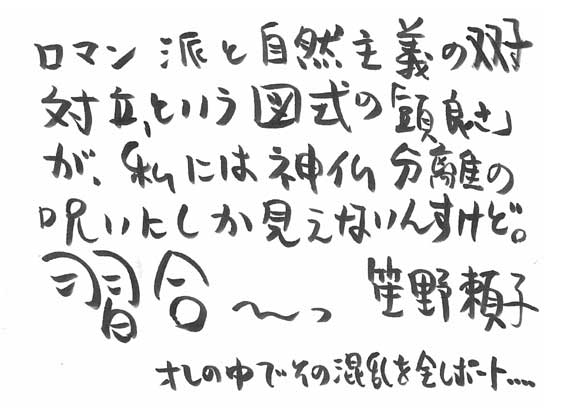 ロマン派と自然主義の双子
対立、という図式の「頭良さ」
が、私には神仏分離の
呪いにしか見えないんすけど。
習合〜っ 笙野頼子
オレの中でその混乱を全レポート....